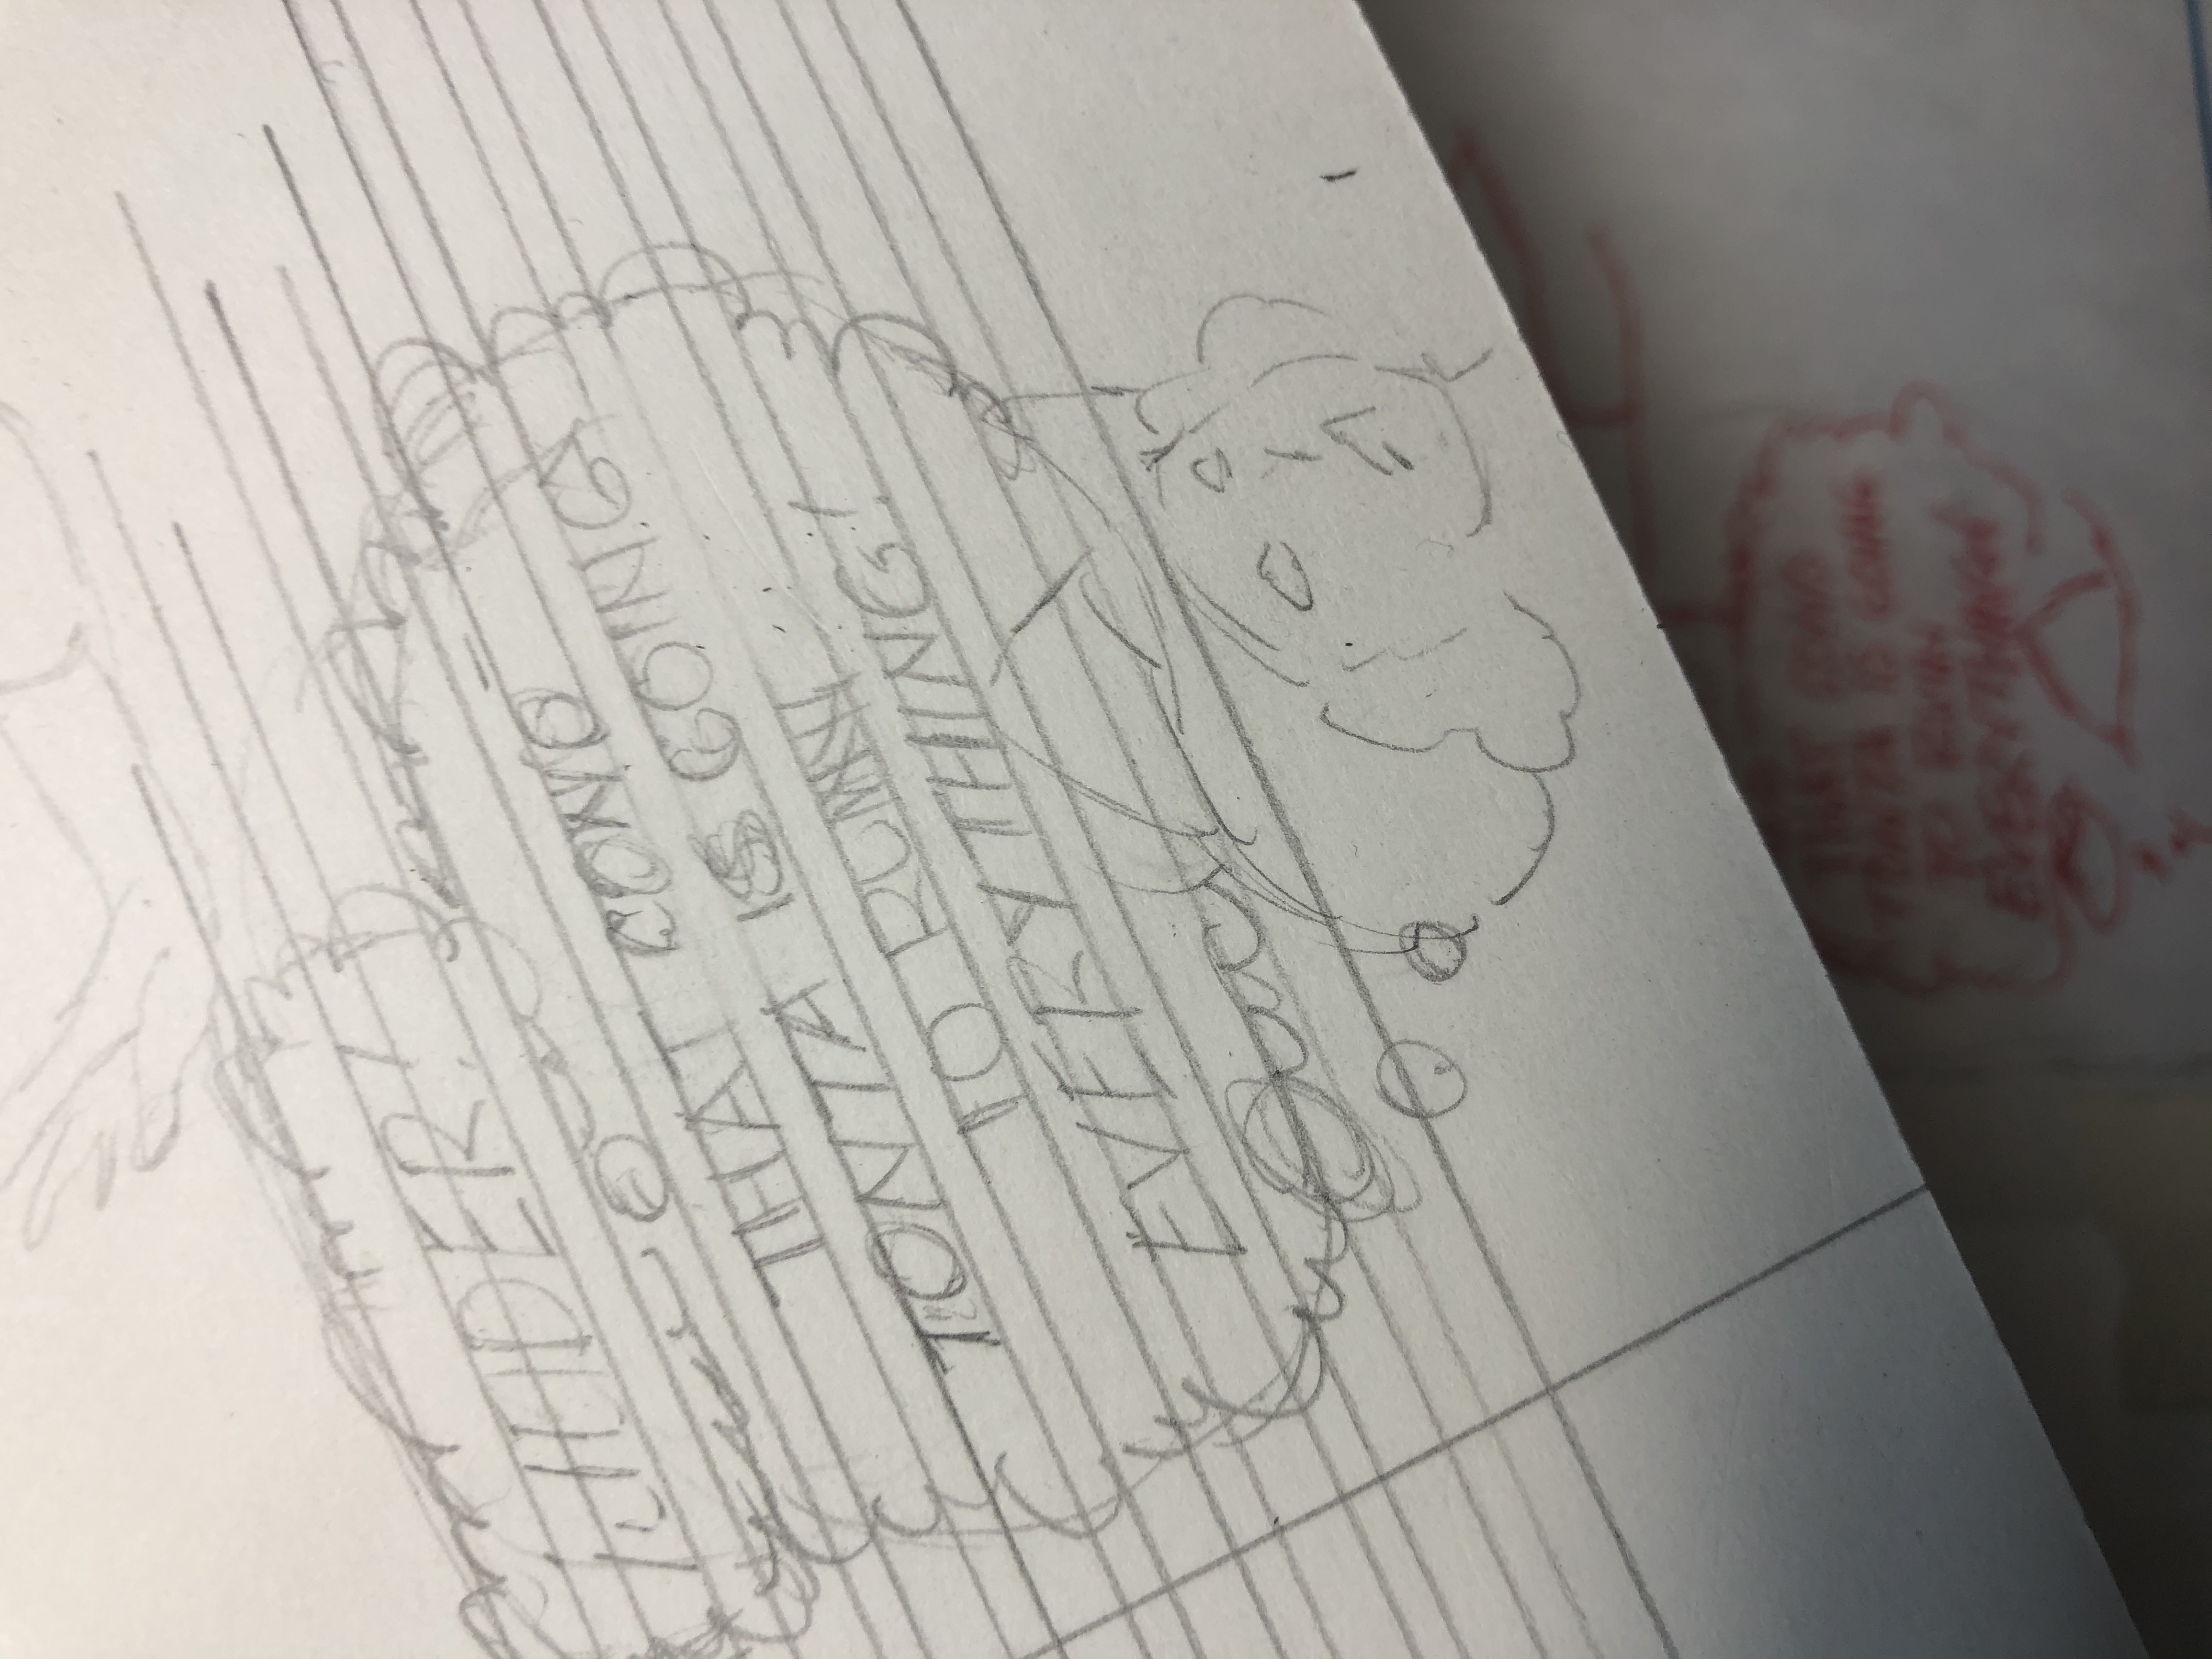 THAT CONO
TONTA IS GOING
TO RUIN
EVERYTHING!
THAT CONO
TONTA IS GOING
TO RUIN
EVERYTHING!